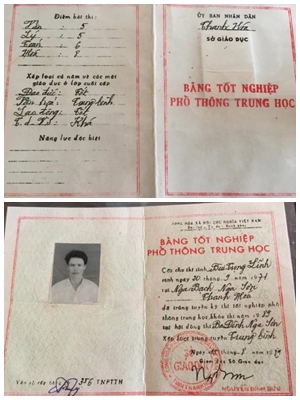 Điểm bài thi:
Văn 5
Lý 5
Toán 6
Hóa 8
Xếp loại cả năm về các mặt
giáo dục ở lớp cuối cấp
Đạo đức: Tốt
Văn hóa: Trung bình
Lao động: Tốt
Khá
Năng lực đặc biệt
ỦY BAN NHÂN DÂN
Thanh Hóa
SỞ GIÁO DỤC
BẰNG TỐT NGHIỆP
PHỔ THÔNG TRUNG HỌC
CỘNG HÒA XÃ HỘI CHỦ NGHĨA VIỆT NAM
BẰNG TỐT NGHIỆP
PHỔ THÔNG TRUNG HỌC
Cấp cho thí sinh Bùi Trung Lĩnh
sinh ngày 20 tháng 8 năm 1971
tại Nga Bạch Nga Sơn
Thanh Hóa
đã trúng tuyển kỳ thi tốt nghiệp phổ
thông trung học, khóa thi năm 1989
tại hội đồng thi Ba Đình Nga Sơn
Xếp loại trúng tuyển Trung bình
Giám đốc Sở Giáo dục
356 TNPTTH